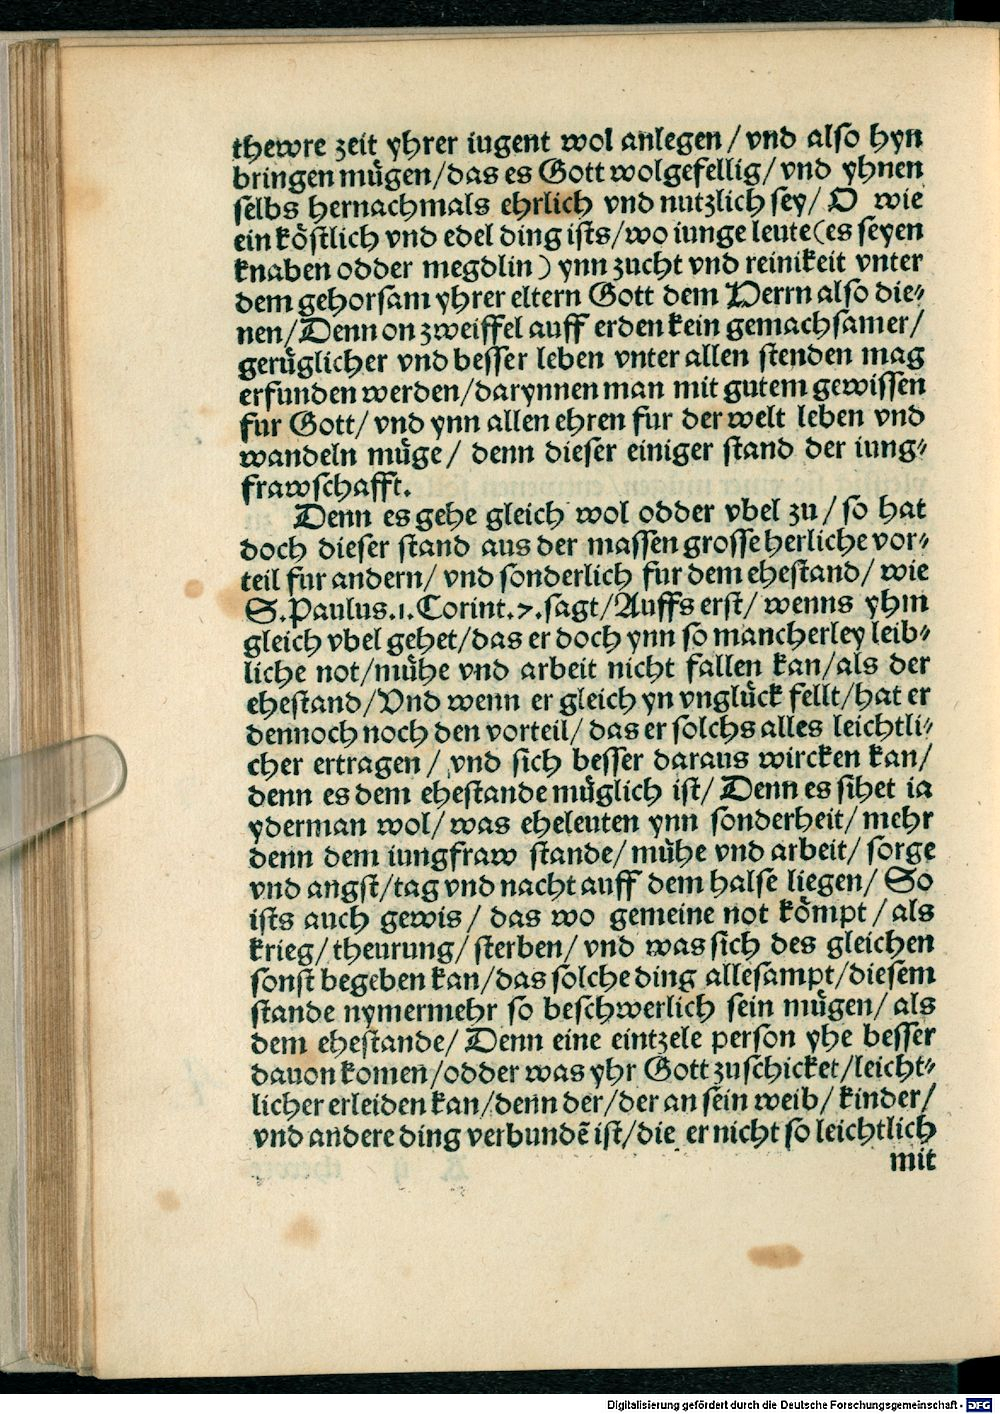 thewre zeit yhrer iugent wol anlegen/vnd also hyn
bringen mügen/das es Gott wolgefellig/vnd yhnen
selbs hernachmals ehrlich vnd nutzlich sey/O wie
ein köstlich vnd edel ding ists/wo iunge leute(es seyen
knaben odder megdlin) ynn zucht vnd reinikeit vnter
dem gehorsam yhrer eltern Gott dem Herrn also die⸗
nen/Denn on zweiffel auff erden kein gemachsamer/
gerüglicher vnd besser leben vnter allen stenden mag
erfunden werden/darynnen man mit gutem gewissen
fur Gott/vnd ynn allen ehren fur der welt leben vnd
wandeln müge/denn dieser einiger stand der iung⸗
frawschafft.
Denn es gehe gleich wol odder vbel zu/so hat
doch dieser stand aus der massen grosse herliche vor⸗
teil fur andern/vnd sonderlich fur dem ehestand/wie
S.Paulus.1.Corint.7.sagt/Auffs erst/wenns yhm
gleich vbel gehet/das er doch ynn so mancherley leib⸗
liche not/mühe vnd arbeit nicht fallen kan/als der
ehestand/Vnd wenn er gleich yn vnglück fellt/hat er
dennoch noch den vorteil/das er solchs alles leichtli⸗
cher ertragen/vnd sich besser daraus wircken kan/
denn es dem ehestande müglich ist/Denn es sihet ia
yderman wol/was eheleuten ynn sonderheit/mehr
denn dem iungfraw stande/mühe vnd arbeit/sorge
vnd angst/tag vnd nacht auff dem halse liegen/So
ists auch gewis/das wo gemeine not kömpt/als
krieg/theurung/sterben/vnd was sich des gleichen
sonst begeben kan/das solche ding allesampt/diesem
stande nymermehr so beschwerlich sein mügen/als
dem ehestande/Denn eine eintzele person yhe besser
dauon komen/odder was yhr Gott zuschicket/leicht⸗
licher erleiden kan/denn der/der an sein weib/kinder/
vnd andere ding verbundẽ ist/die er nicht so leichtlich
mit
Digitalisierung gefördert durch die Deutsche Forschungsgemeinschaft - DFG